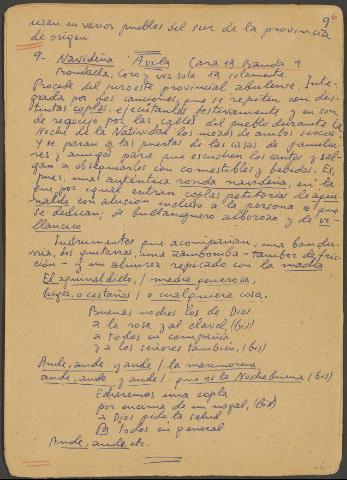 usan en varios pueblos del sur de la provincia
de origen
96
9- Navideña Ávila Cara 1ª Banda 9.
Rondalla, Coro y voz sola la solamente.
Procede del suroeste provincial abulense. Inte-
grada por dos canciones, que se repiten con dis-
tintas coplas, ejecutantas festivamente y en son
de regocijo por las calles del pueblo durante la
Noche de la Natividad los mozos de ambos sexos.
Y se paran a las puertas de las casas de familia-
res y amigos para que escuchen los cantos y sal-
gan a obsequiarles con comestibles y bebidas. Es,
pues, una auténtica ronda navideña, en la
que por igual entran coplas petitorias de agui-
naldo con alusión incluso a la persona a quien
se dedican; de bullanguero alborozo y de vi-
llancico.
Instrumentos que acompañan, una bandu-
rria, dos guitarras, una zambomba - tambor de fric-
ción - y un almirez repicado con la macha
El aguinaldillo, / madre generosa,
higos, o castañas / o cualquiera cosa.
Buenas noches los dé Dios
a la rosa y al clavel, (bis)
a todos en compañía
y a los señores también, (bis)
Ande, ande y ande / la marimorena
ande, ande y ande / que es la Nochebuena (bis)
Echaremos una copla
por encima de un nogal, (bis)
a Dios pido la salud
Pa todos en general
Ande, ande, etc.
-6-